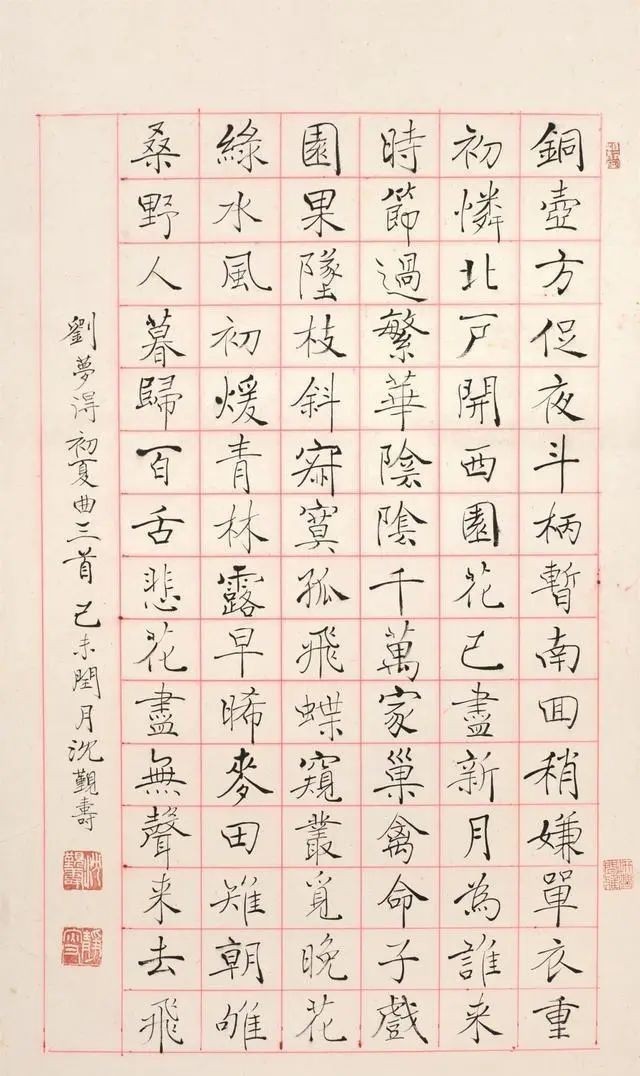 銅壺方促夜斗柄暫南囬稍嫌單衣重
初憐北戸開西園花已盡新月為誰来
時節過繁華陰陰千萬家巢禽命子戲
園果墜枝斜寂寞孤飛蝶窺叢覓晚花
綠水風初煖青林露早晞麥田雉朝雊
桑野人暮歸百舌悲花盡無聲来去飛
劉夢得初夏曲三首 己未閏月沈覲壽